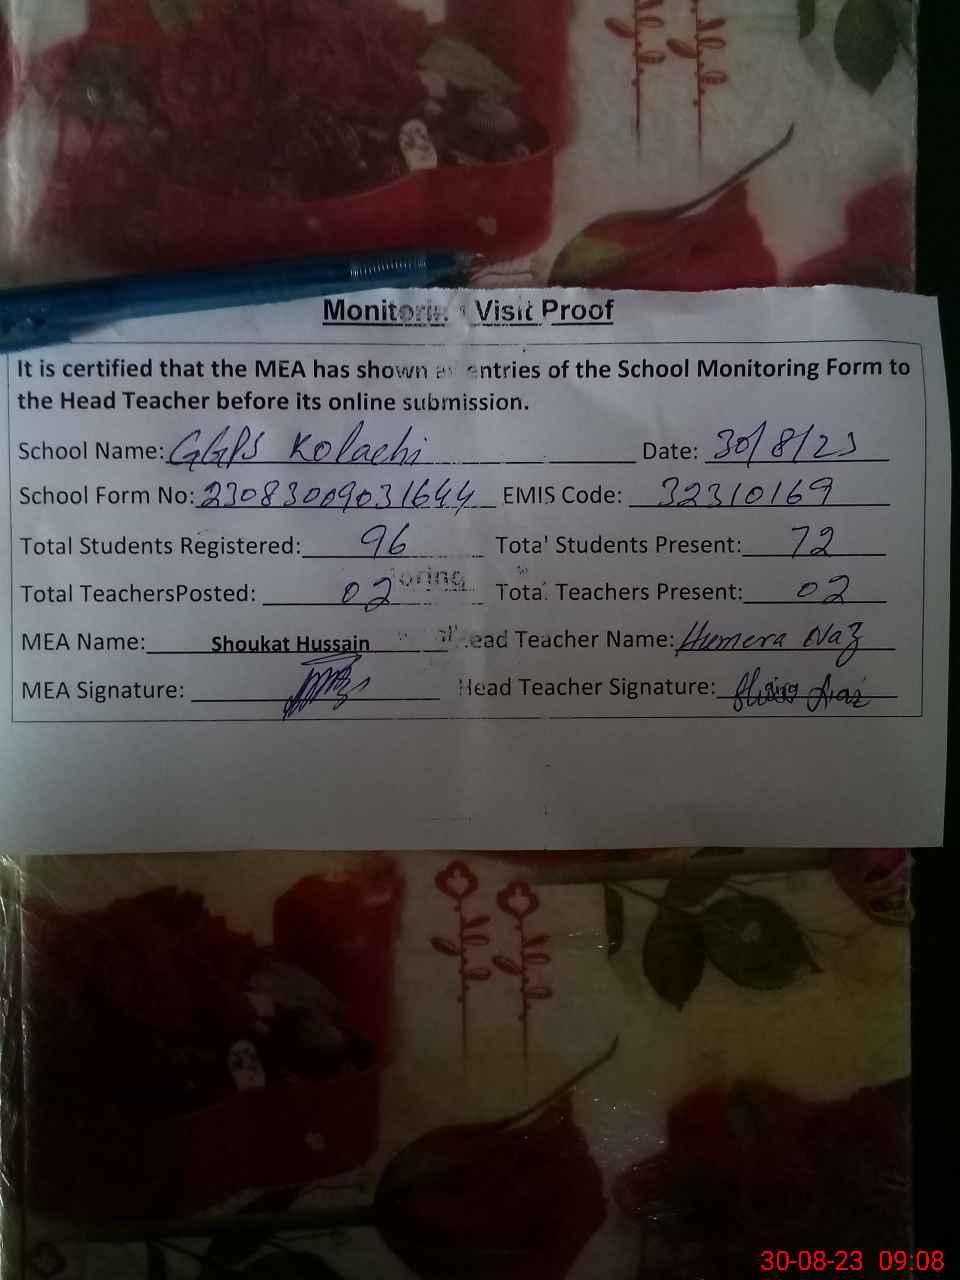 Monitoring Visit Proof
It is certified that the MEA has shown entries of the School Monitoring Form to
the Head Teacher before its online submission.
School Name: GGPS Kolachi Date: 30/8/23
School Form No: 23083009031644 EMIS Code: 32310169
Total Students Registered: 96 Total Students Present: 72
oring
Total TeachersPosted: 02 Total Teachers Present: 02
MEA Name: Shoukat Hussain Head Teacher Name: Humera Naz
MEA Signature: Head Teacher Signature:
30-08-23 09:08